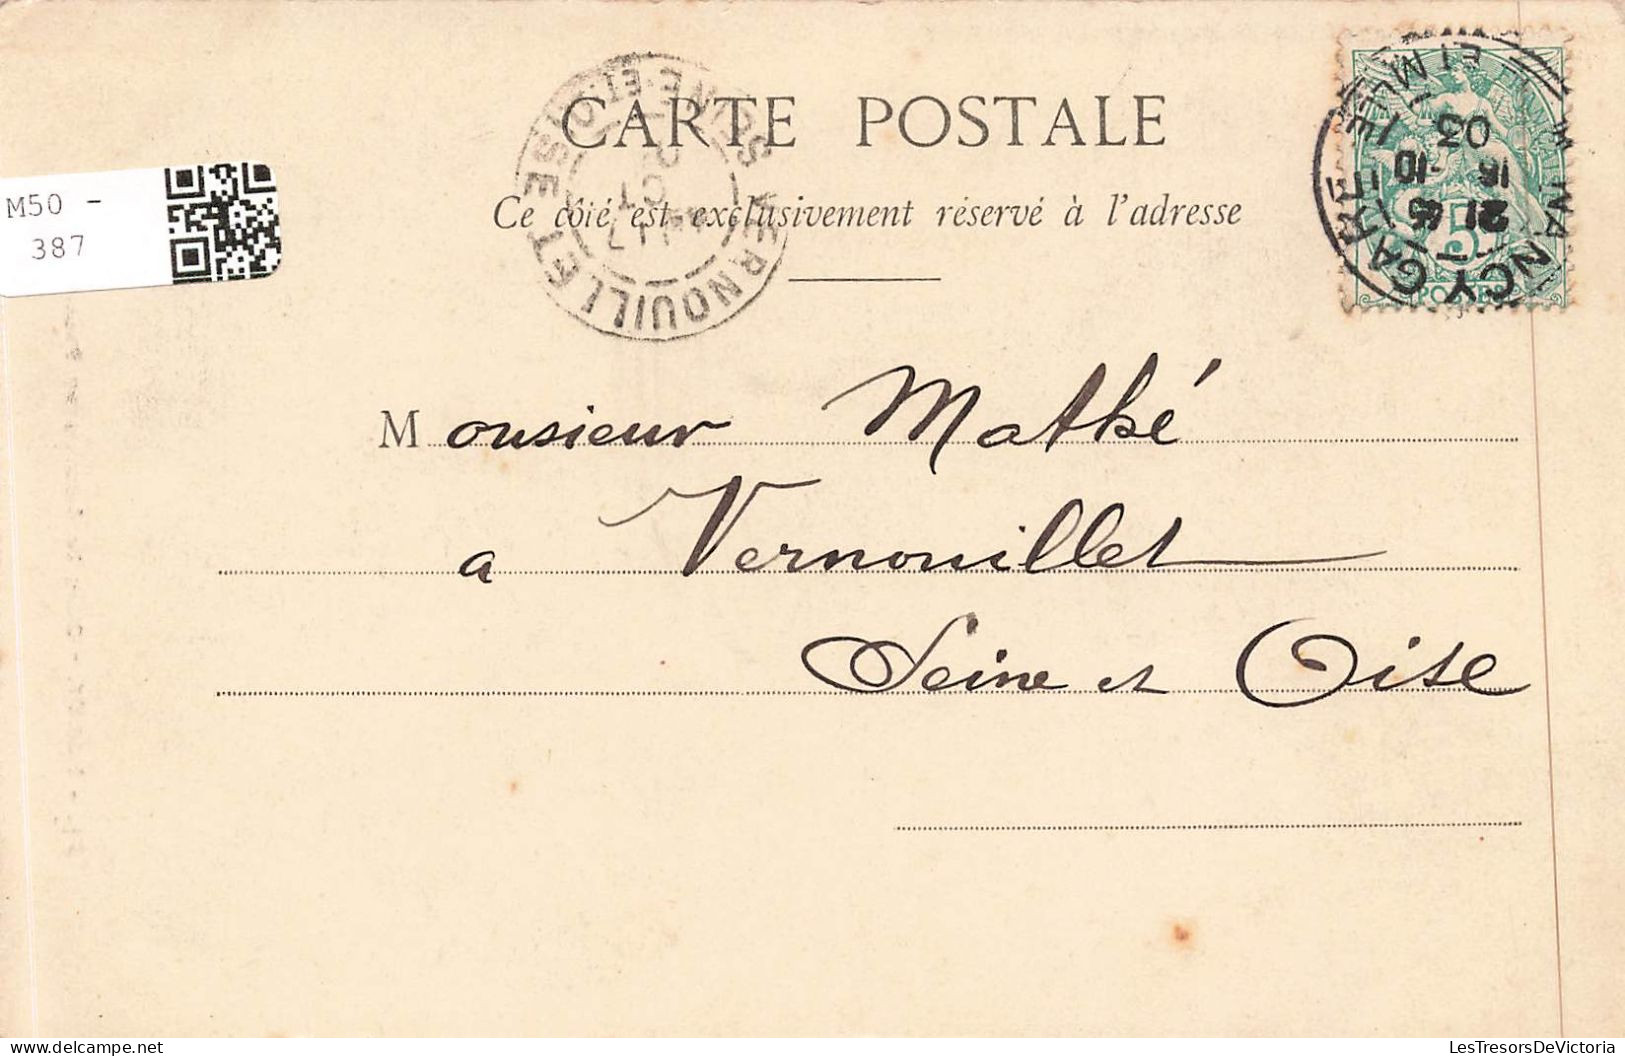 CARTE POSTALE
Ce côté est exclusivement réservé à l'adresse
M50 -
387
SEINE-ET-OISE
VERNOUILLET
OCT
NANCY GARE
MTHE ET MLLE
21
15
-10
03
5
POSTES
Monsieur Mathé
a Vernouillet
Seine et Oise
LesTresorsDeVictoria